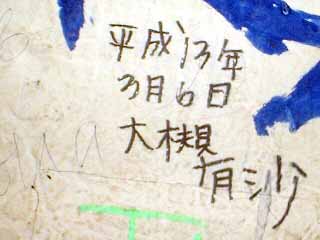 平成13年
3月6日
大槻
有沙